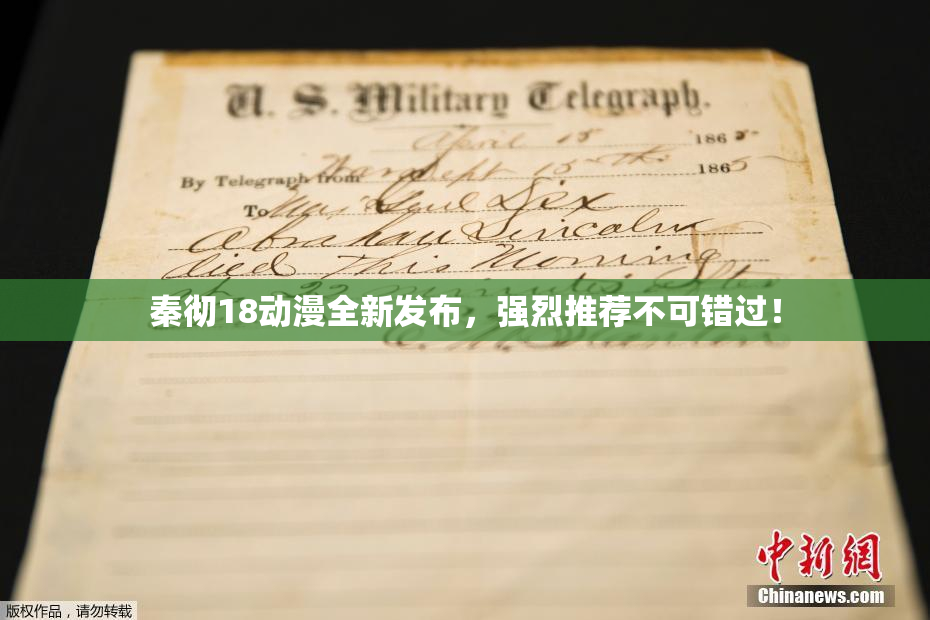 U. S. Military Telegraph.
April 15 1865
By Telegraph from War Dept 15th 1865
To Maj Genl Dix
Abraham Lincoln
died This Morning
at 22 minutes after
秦彻18动漫全新发布，强烈推荐不可错过！
中新網
Chinanews.com
版权作品，请勿转载